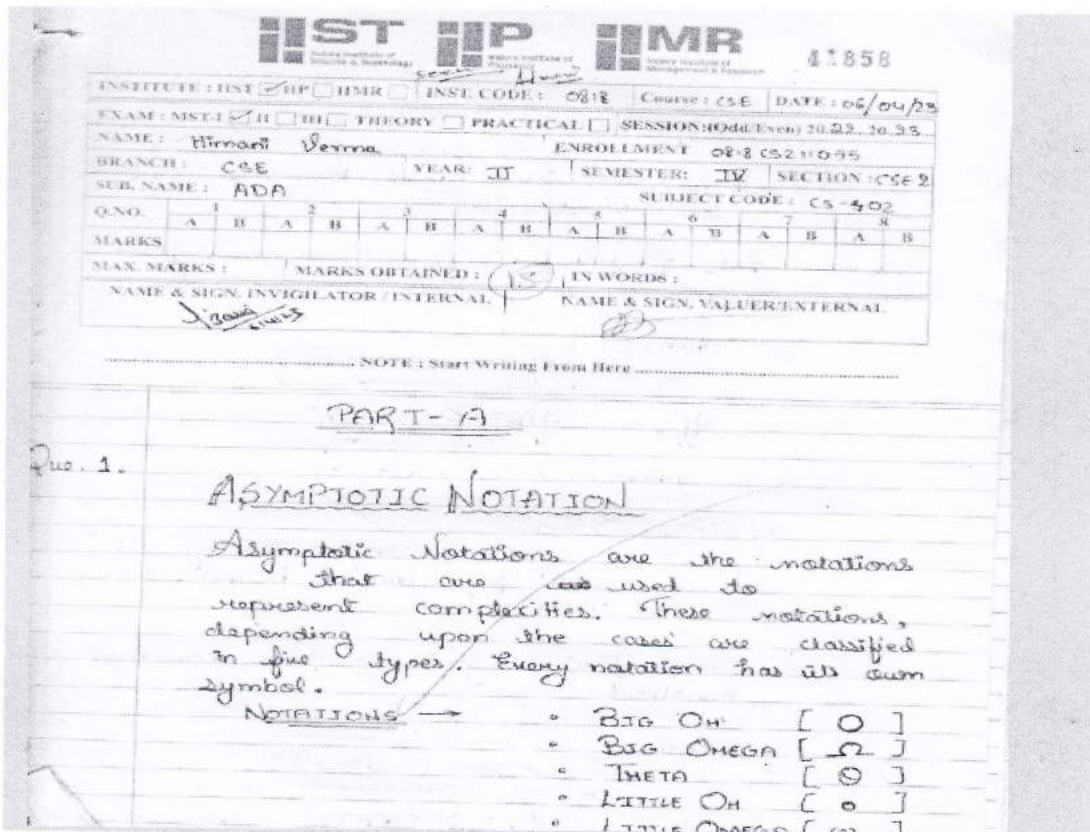 IIST IIP IIMR 41858
Indore Institute of Science & Technology Indore Institute of Pharmacy Indore Institute of Management & Research
INSTITUTE : IIST ✓ IIP IIMR INST. CODE : 0818 Course : CSE DATE : 06/04/23
EXAM : MST-I ✓ II III THEORY PRACTICAL SESSION:(Odd/Even) 2022. 2023.
NAME : Himani Verma ENROLLMENT
BRANCH : CSE YEAR: II SEMESTER: IV SECTION : CSE 2
SUB. NAME : ADA SUBJECT CODE : CS-402
Q.NO. 1 2 3 4 5 6 7 8
A B A B A B A B A B A B A B A B
MARKS
MAX. MARKS : MARKS OBTAINED : 15 IN WORDS :
NAME & SIGN. INVIGILATOR / INTERNAL NAME & SIGN. VALUER/EXTERNAL
NOTE : Start Writing From Here
PART-A
Que. 1.
ASYMPTOTIC NOTATION
Asymptotic Notations are the notations
that are used to
represent complexities. These notations,
depending upon the cases are classified
in five types. Every notation has its own
symbol.
NOTATIONS → • BIG OH [ O ]
• BIG OMEGA [ Ω ]
• THETA [ Θ ]
• LITTLE OH [ o ]
• LITTLE OMEGA [ ω ]